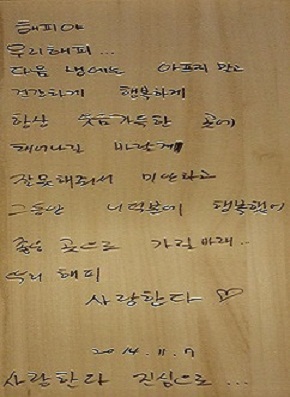 해피야
우리해피...
다음 생에는 아프지 말고
건강하게 행복하게
항상 웃음가득한 곳에
태어나길 바랄게
잘못해줘서 미안하고
그동안 너덕분에 행복했어
좋은 곳으로 가길 바래..
우리 해피
사랑한다 ♡
2014.11.7
사랑한다 진심으로...